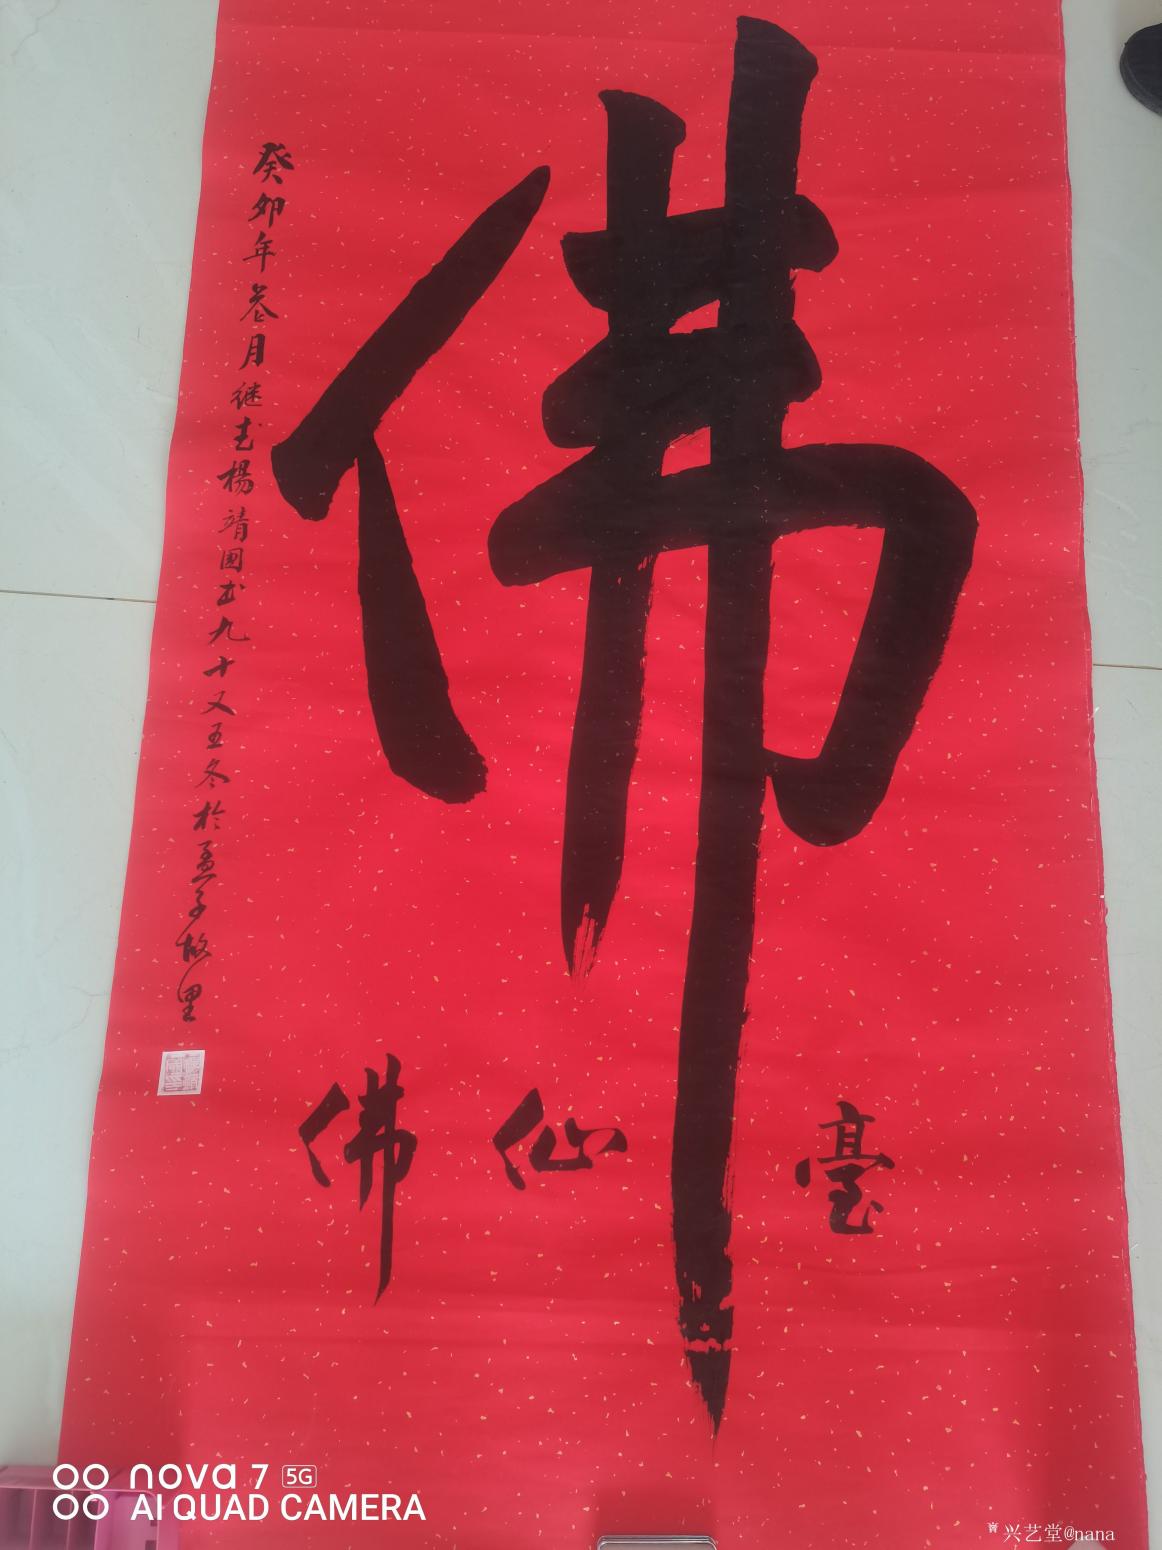 佛
臺仙佛
癸卯年叁月继志楊靖國书九十又五冬於孟子故里
nova 7 5G
AI QUAD CAMERA
兴艺堂@nana